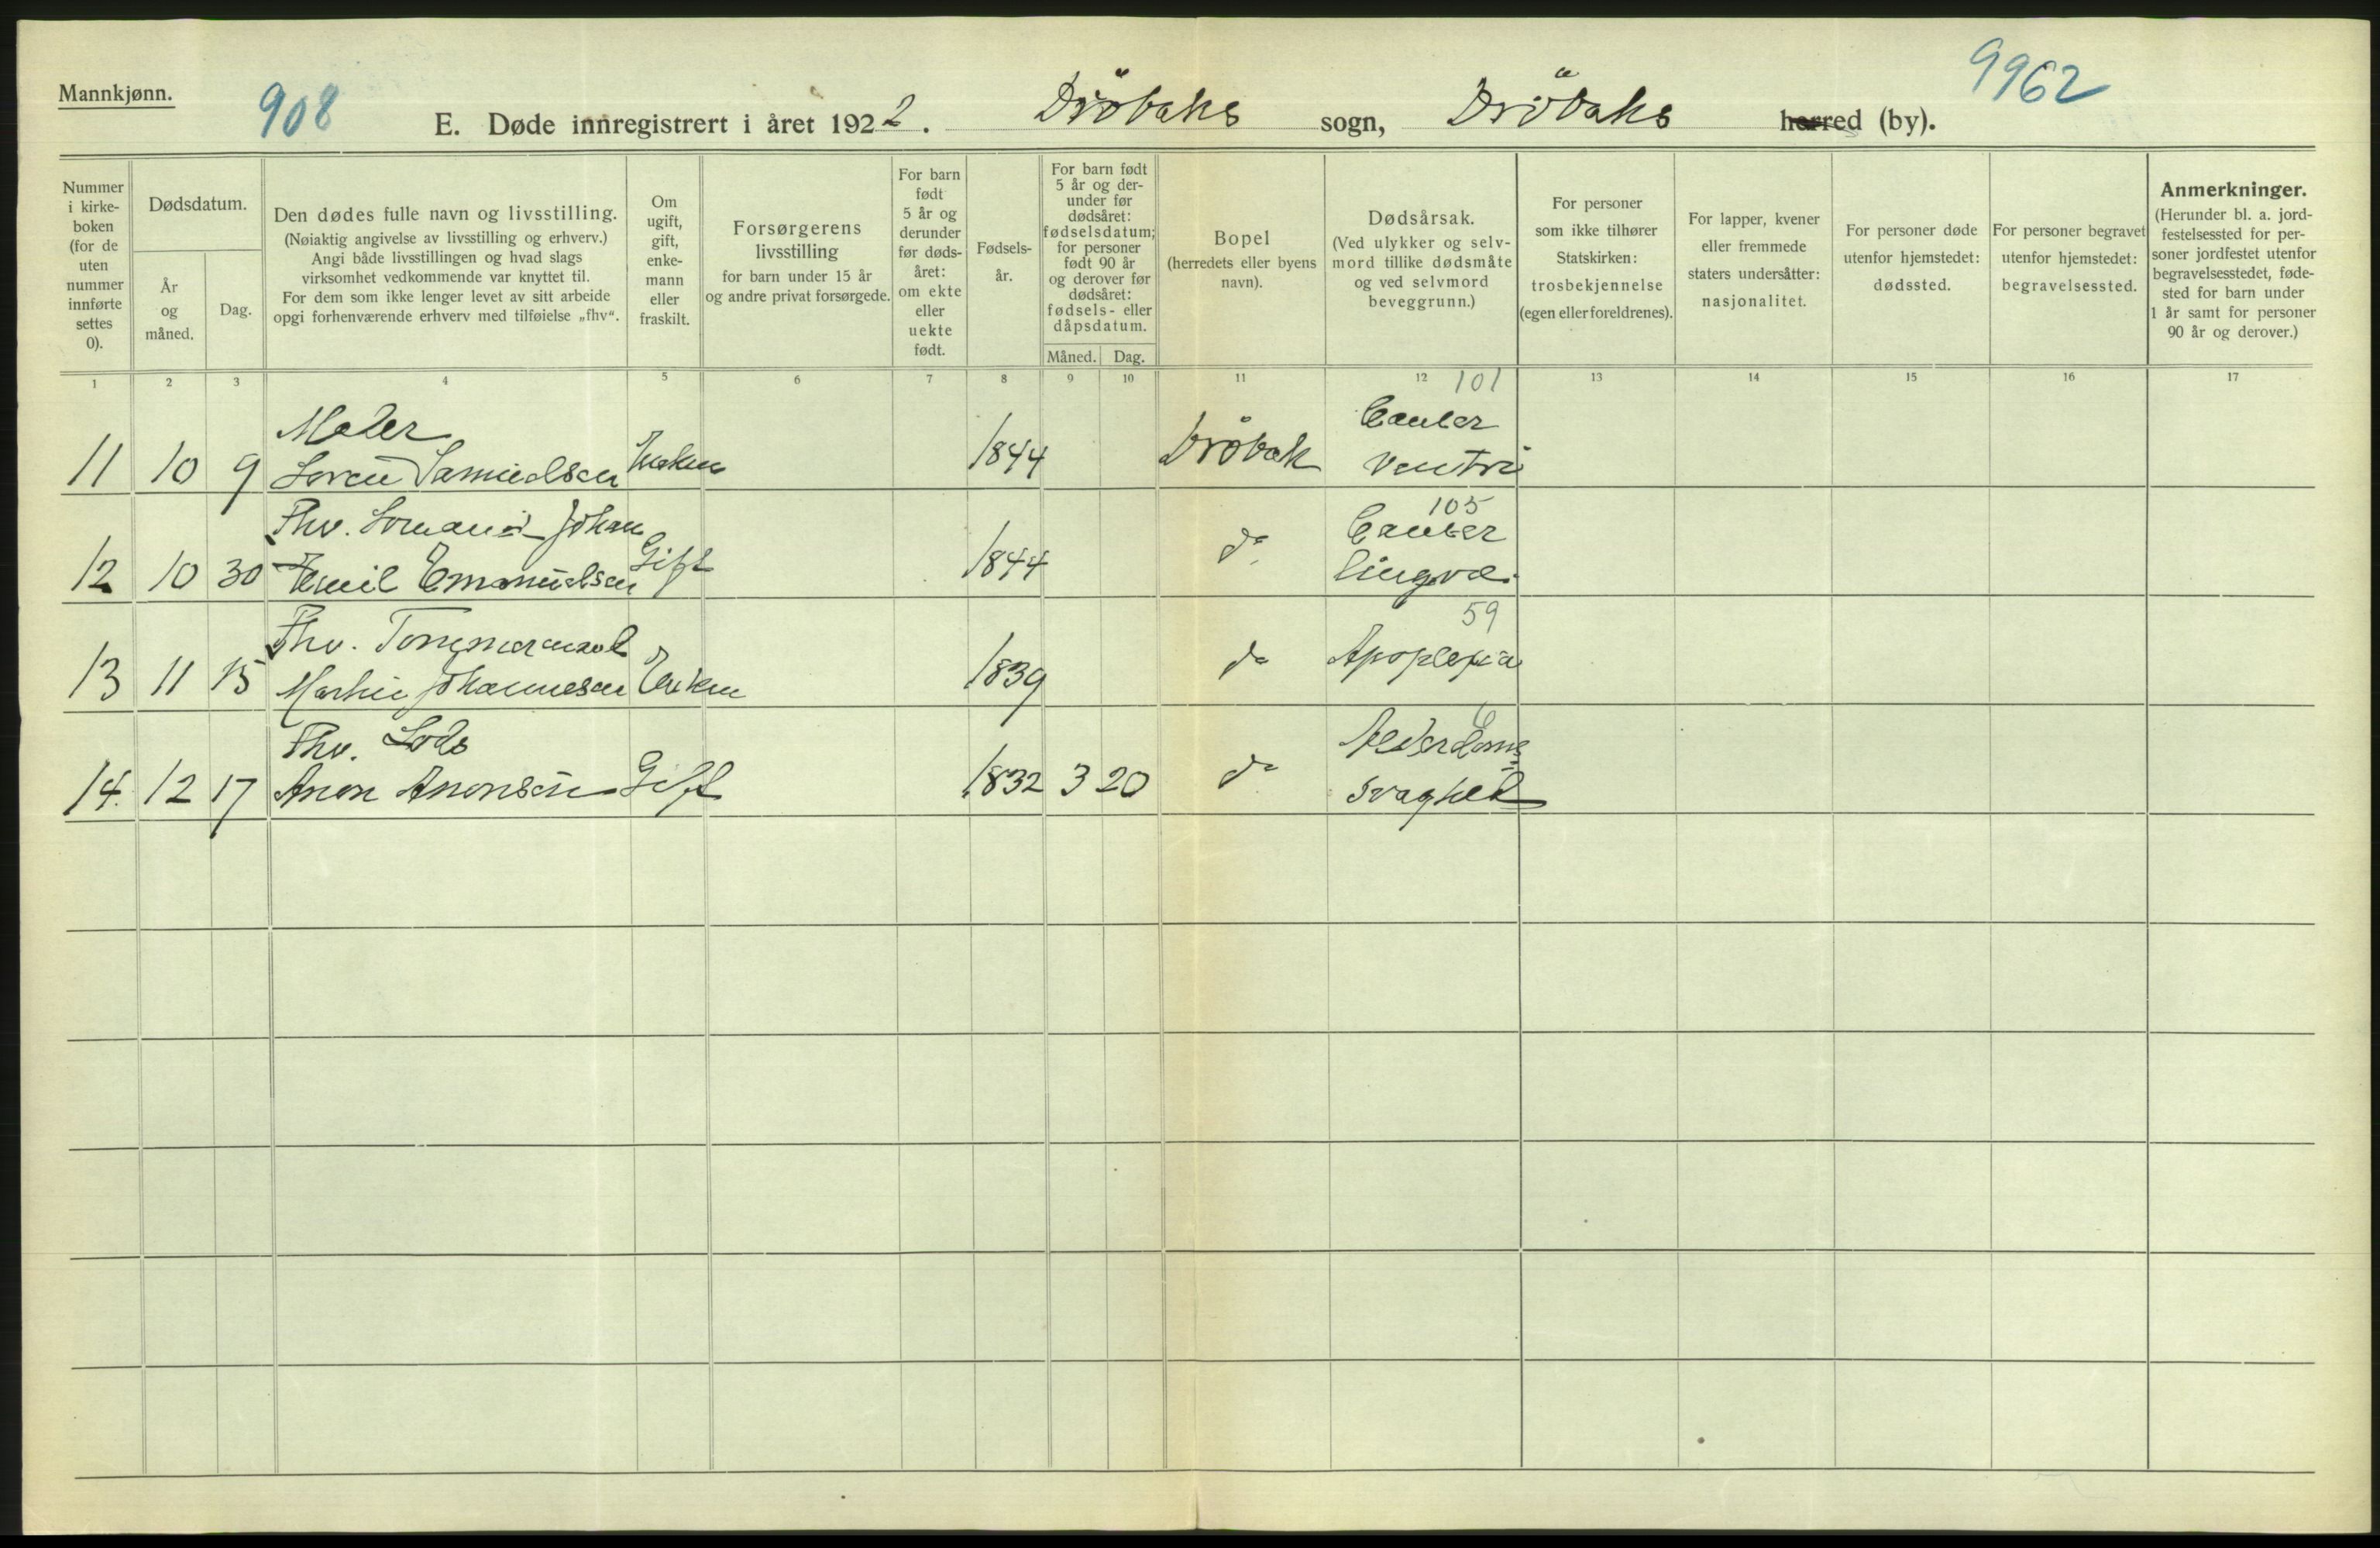 Mannkjønn.
908
9962
E. Døde innregistrert i året 1922. Dröbaks sogn, Dröbaks herred (by).
Nummer i kirke-boken (for de uten nummer innførte settes 0).
Dødsdatum.
År og måned.
Dag.
Den dødes fulle navn og livsstilling.
(Nøiaktig angivelse av livsstilling og erhverv.)
Angi både livsstillingen og hvad slags
virksomhet vedkommende var knyttet til.
For dem som ikke lenger levet av sitt arbeide
opgi forhenværende erhverv med tilføielse „fhv“.
Om ugift, gift, enke-mann eller fraskilt.
Forsørgerens
livsstilling
for barn under 15 år
og andre privat forsørgede.
For barn født 5 år og derunder før døds-året: om ekte eller uekte født.
Fødsels-år.
For barn født
5 år og der-
under før
dødsåret:
fødselsdatum;
for personer
født 90 år
og derover før
dødsåret:
fødsels- eller
dåpsdatum.
Måned. Dag.
Bopel
(herredets eller byens
navn).
Dødsårsak.
(Ved ulykker og selv-
mord tillike dødsmåte
og ved selvmord
beveggrunn.)
For personer
som ikke tilhører
Statskirken:
trosbekjennelse
(egen eller foreldrenes).
For lapper, kvener
eller fremmede
staters undersåtter:
nasjonalitet.
For personer døde
utenfor hjemstedet:
dødssted.
For personer begravet
utenfor hjemstedet:
begravelsessted.
Anmerkninger.
(Herunder bl. a. jord-
festelsessted for per-
soner jordfestet utenfor
begravelsesstedet, føde-
sted for barn under
1 år samt for personer
90 år og derover.)
1 2 3 4 5 6 7 8 9 10 11 12 13 14 15 16 17
101
Maler Cancer
11 10 9 Soren Samuelsen 1844 Dröbak Ventri
105
Fhv. Johan Cancer
12 10 30 Emil Emanuelsen Gift 1844 do lingvæ.
59
Fhv. Tommermand
13 11 15 Martin Johannesen Enkem 1839 do Apoplexia
Fhv. Lods Alderdoms
14. 12 17 Anon Anonsen Gift 1832 3 20 do svaghed